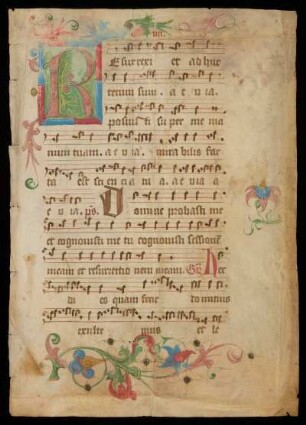 Resurrexi et ad huc
tecum sum. a e v ia.
posuisti super me ma
num tuam. a e v ia. mira bilis fac
ta est sci en cia tu a. ae v ia a
e v ia. ps. Domine probasti me
et cognovisti me tu cognovisti sessionē
meam et resurrectio nem meam. Hec
di es quam fecit do minus
exulte mus et le